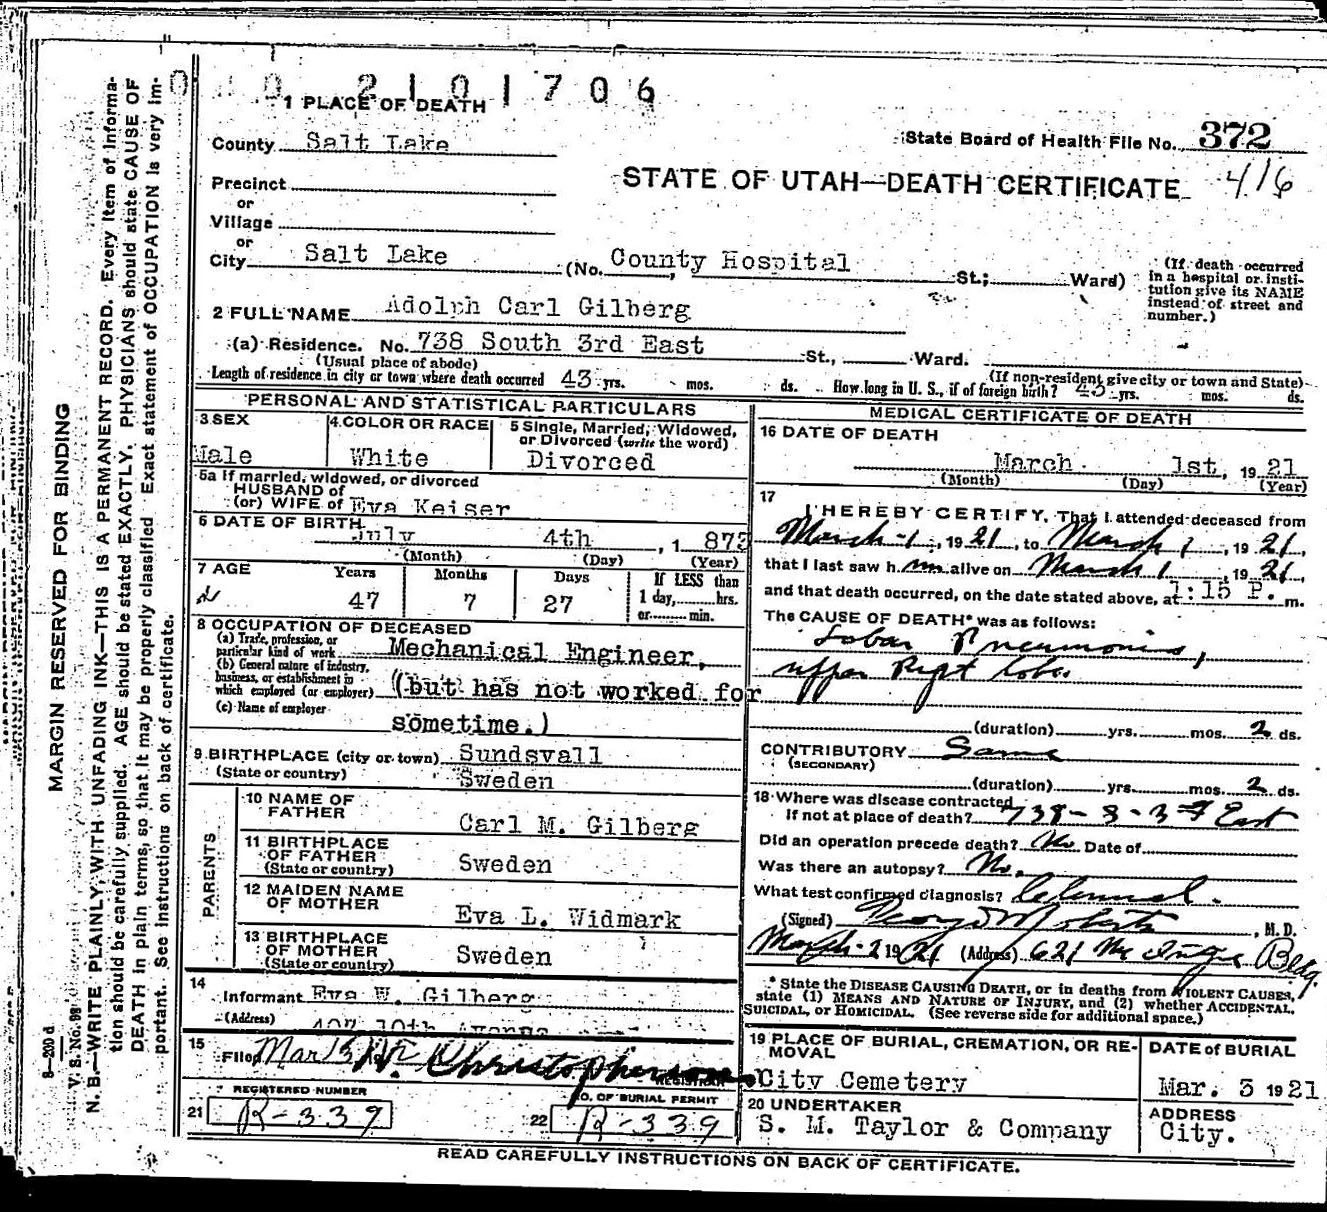 2101706
1 PLACE OF DEATH
County Salt Lake
State Board of Health File No. 372
416
Precinct
or
STATE OF UTAH—DEATH CERTIFICATE
Village
or
City Salt Lake (No. County Hospital St.; Ward)
(If death occurred in a hospital or insti-
tution give its NAME
instead of street and
number.)
2 FULL NAME Adolph Carl Gilberg
(a) Residence. No. 738 South 3rd East St., Ward.
(Usual place of abode) (If non-resident give city or town and State)
Length of residence in city or town where death occurred 43 yrs. mos. ds. How long in U. S., if of foreign birth? 43 yrs. mos. ds.
PERSONAL AND STATISTICAL PARTICULARS
3 SEX
Male
4 COLOR OR RACE
White
5 Single, Married, Widowed,
or Divorced (write the word)
Divorced
5a If married, widowed, or divorced
HUSBAND of
(or) WIFE of Eva Keiser
6 DATE OF BIRTH
July 4th, 1873
(Month) (Day) (Year)
7 AGE Years Months Days If LESS than
47 7 27 1 day, hrs.
or min.
8 OCCUPATION OF DECEASED
(a) Trade, profession, or
particular kind of work Mechanical Engineer,
(b) General nature of industry,
business, or establishment in
which employed (or employer) (but has not worked for
(c) Name of employer
sometime.)
9 BIRTHPLACE (city or town) Sundsvall
(State or country) Sweden
PARENTS
10 NAME OF
FATHER Carl M. Gilberg
11 BIRTHPLACE
OF FATHER
(State or country) Sweden
12 MAIDEN NAME
OF MOTHER Eva L. Widmark
13 BIRTHPLACE
OF MOTHER
(State or country) Sweden
14
Informant Eva W. Gilberg
(Address) 407 10th Avenue
15
Filed Mar 3 W. Christopherson
REGISTRAR
REGISTERED NUMBER
21 R-339
NO. OF BURIAL PERMIT
22 R-339
MEDICAL CERTIFICATE OF DEATH
16 DATE OF DEATH
March 1st, 1921
(Month) (Day) (Year)
17
I HEREBY CERTIFY, That I attended deceased from
March 1, 1921, to March 1, 1921,
that I last saw him alive on March 1, 1921,
and that death occurred, on the date stated above, at 1:15 P. m.
The CAUSE OF DEATH* was as follows:
Lobar Pneumonia,
upper Right lobe
(duration) yrs. mos. 2 ds.
CONTRIBUTORY Same
(SECONDARY)
(duration) yrs. mos. 2 ds.
18 Where was disease contracted
If not at place of death? 738-S-3rd East
Did an operation precede death? No Date of
Was there an autopsy? No.
What test confirmed diagnosis? Clinical.
(Signed) George W Roberts, M.D.
March 2 1921 (Address) 621 McIntyre Bldg.
*State the DISEASE CAUSING DEATH, or in deaths from VIOLENT CAUSES,
state (1) MEANS AND NATURE OF INJURY, and (2) whether ACCIDENTAL,
SUICIDAL, or HOMICIDAL. (See reverse side for additional space.)
19 PLACE OF BURIAL, CREMATION, OR RE-
MOVAL
City Cemetery
DATE of BURIAL
Mar. 3 1921
20 UNDERTAKER
S. M. Taylor & Company
ADDRESS
City.
READ CAREFULLY INSTRUCTIONS ON BACK OF CERTIFICATE.
MARGIN RESERVED FOR BINDING
V. S. No. 98
N. B.—WRITE PLAINLY, WITH UNFADING INK—THIS IS A PERMANENT RECORD. Every item of informa-
tion should be carefully supplied. AGE should be stated EXACTLY. PHYSICIANS should state CAUSE OF
DEATH in plain terms, so that it may be properly classified. Exact statement of OCCUPATION is very im-
portant. See instructions on back of certificate.